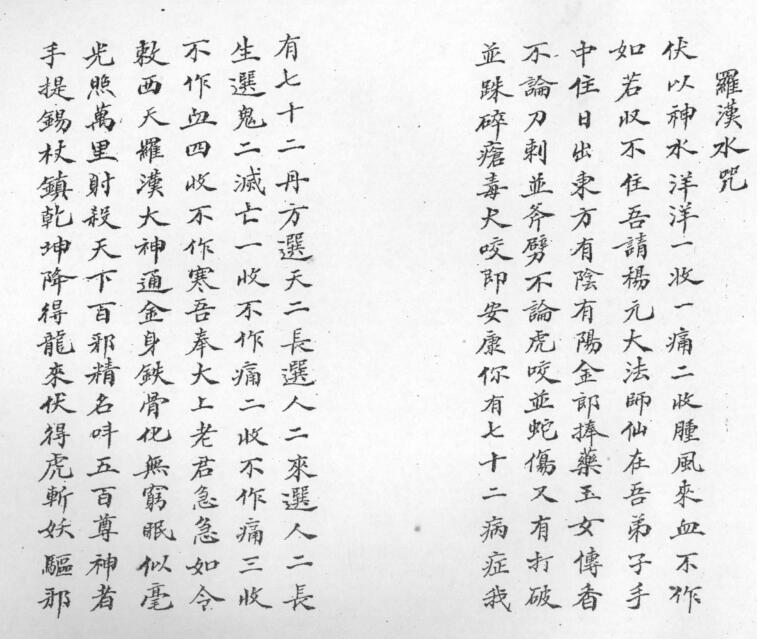 羅漢水咒
伏以神水洋洋一收一痛二收腫風來血不作
如若收不住吾請楊元大法師仙在吾弟子手
中住日出東方有陰有陽金郎捧藥玉女傳香
不論刀刺並斧劈不論虎咬並蛇傷又有打破
並跌碎瘡毒犬咬即安康你有七十二病症我
有七十二丹方選天二長選人二來選人二長
生選鬼二滅亡一收不作痛二收不作痛三收
不作血四收不作寒吾奉大上老君急急如令
敕西天羅漢大神通金身鉄骨化無窮眠似毫
光照萬里射殺天下百邪精名呌五百尊神者
手提錫杖鎮乾坤降得龍來伏得虎斬妖驅邪